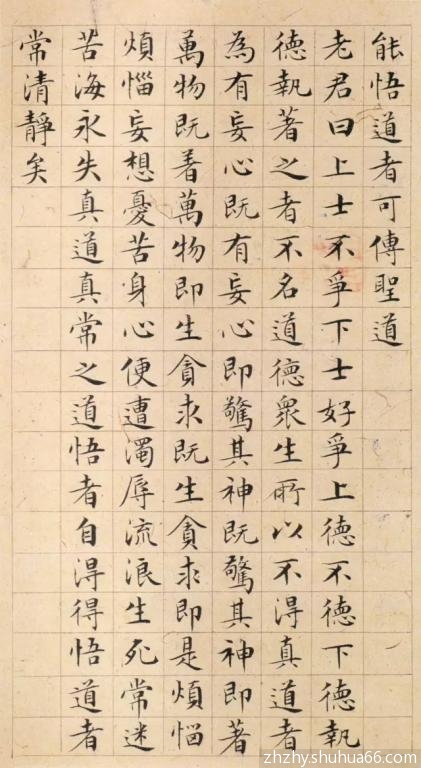 能悟道者可傳聖道
老君曰上士不爭下士好爭上德不德下德執
德執著之者不名道德衆生所以不得真道者
為有妄心既有妄心即驚其神既驚其神即著
萬物既着萬物即生貪求既生貪求即是煩惱
煩惱妄想憂苦身心便遭濁辱流浪生死常迷
苦海永失真道真常之道悟者自得得悟道者
常清靜矣
zhzhy.shuhua66.com